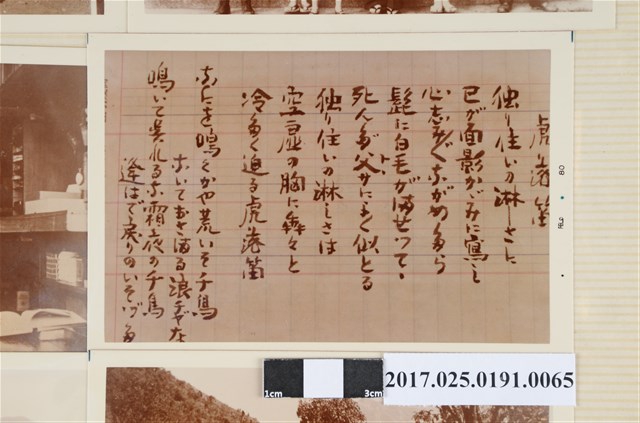 虎落笛
独り住いの淋しさに
己が面影かゞみに寫し
心志みゞゝながめたら
髭に白毛がませつて、
死んだ父サによく似とる
独り住いの淋しさは
空虚の胸に犇々と
冷たく迫る虎落笛
なにを鳴くかや荒いそ千鳥
ないておさまる浪ぢやな
鳴いて呉れるな霜夜の千鳥
逢はで戻りのいそづた
80
FEB
1cm
3cm
2017.025.0191.0065